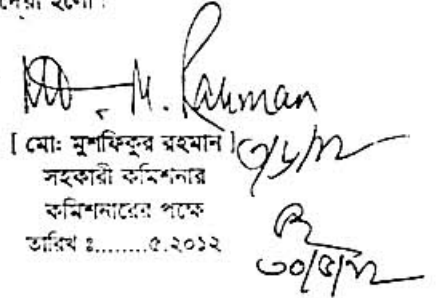 দেয়া হলো।
Md. M. Rahman
[ মো: মুশফিকুর রহমান ]
সহকারী কমিশনার
কমিশনারের পক্ষে
তারিখ ঃ........৫.২০১২
৩০/৫/১২